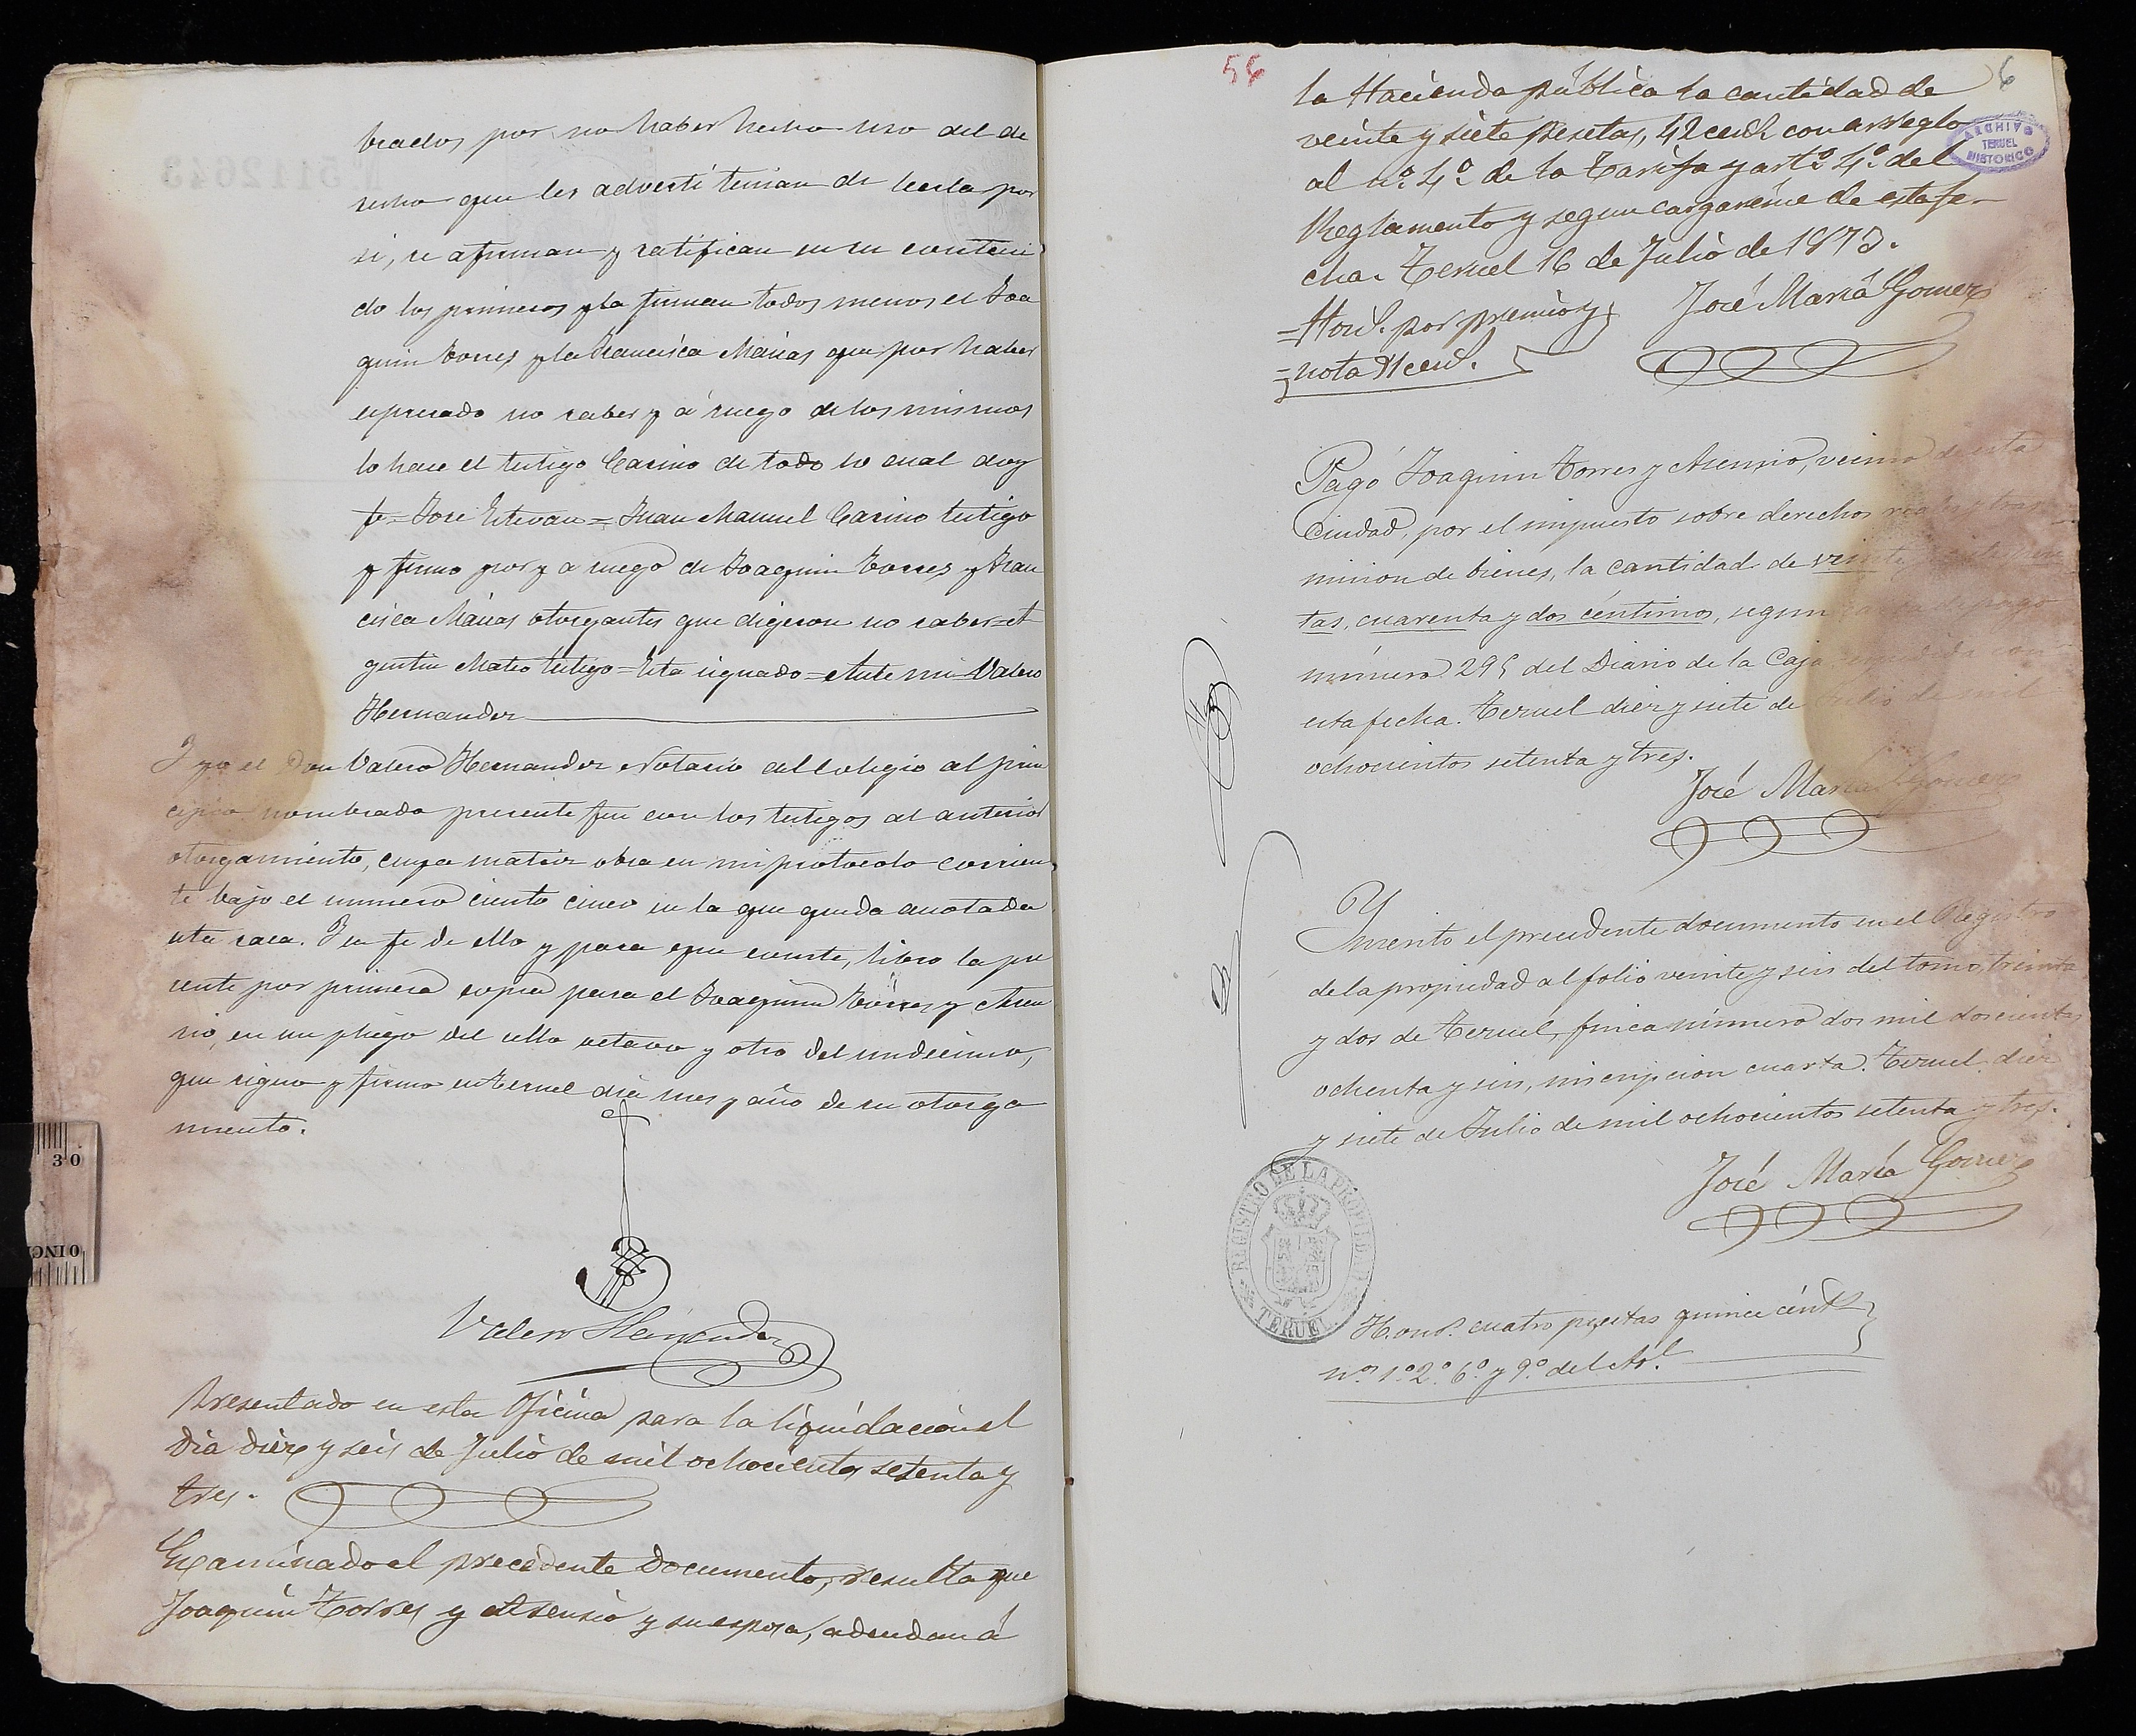 brados por no haber hecho uso del de
recho que les advertí tenian de leerla por
si, se afirman y ratifican en su conteni
do los primeros y la firman todos menos el Joa
quin Torres y la Francisca Marias que por haber
espresado no saber y á ruego de los mismos
lo hace el testigo Casino de todo lo cual doy
fe = José Estevan = Juan Manuel Casino testigo
y firmo por y a ruego de Joaquin Torres y Fran
cisca Marias otorgantes que digeron no saber = A
gustin Mateo testigo = Esta signado = Ante mi = Valero
Hernandez
Y yo el Don Valero Hernandez Notario del Colegio al prin
cipio nombrado presente fui con los testigos al anterior
otorgamiento, cuya matriz obra en mi protocolo corrien
te bajo el numero ciento cinco en la que queda anotada
esta saca. Y en fe de ello y para que conste, libro la pre
sente por primera copia para el Joaquin Torres y Asen
sio, en un pliego del sello octavo y otro del undecimo,
que signo y firmo en Teruel dia mes y año de su otorga
miento.
Valero Hernandez
Presentado en esta Oficina para la liquidacion el
dia diez y seis de Julio de mil ochocientos setenta y
tres.
Examinado el precedente documento, resulta que
Joaquin Torres y Asensio y su esposa, adeudan á
56
6
la Hacienda pública la cantidad de
veinte y siete pesetas, 42 cents con arreglo
al nº 4º de la Tarifa y artº 4º del
Reglamento y segun cargareme de esta fe-
cha. Teruel 16 de Julio de 1873.
José María Gomez
= Hons. por premio y
= nota 91 cens.
ARCHIVO
TERUEL
HISTORICO
Pagó Joaquin Torres y Asensio, vecino de esta
Ciudad, por el impuesto sobre derechos reales y tras-
mision de bienes, la cantidad de veinte y siete pese
tas, cuarenta y dos céntimos, segun carta de pago
número 295 del Diario de la Caja espedida con
esta fecha. Teruel diez y siete de Julio de mil
ochocientos setenta y tres.
José María Gomez
Ynscrito el precedente documento en el Registro
de la propiedad al folio veinte y seis del tomo treinta
y dos de Teruel, finca número dos mil doscientos
ochenta y seis, inscripcion cuarta. Teruel diez
y siete de Julio de mil ochocientos setenta y tres.
José María Gomez
REGISTRO DE LA PROPIEDAD
TERUEL
Hons. cuatro pesetas quince cénts
nos 1º 2º 6º y 9º del Arl
30